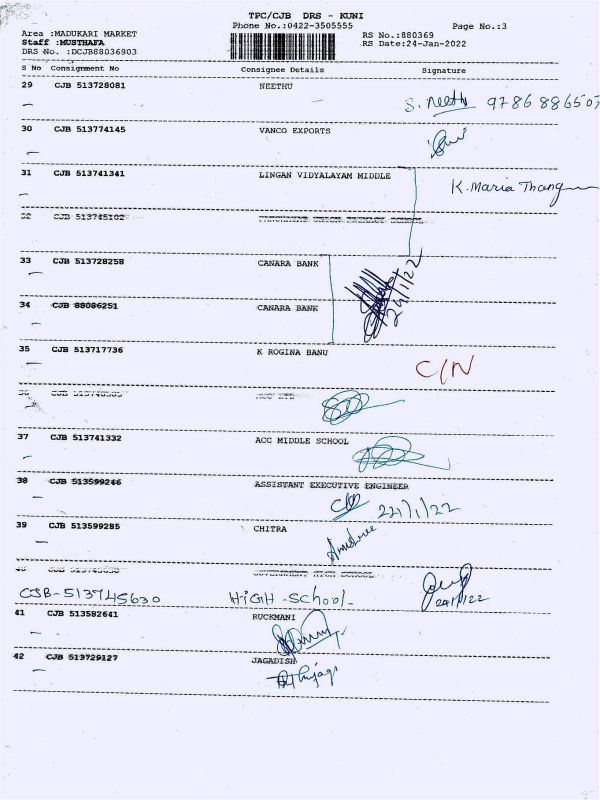 TPC/CJB DRS - KUNI
Area :MADUKARI MARKET Phone No.:0422-3505555 Page No.:3
Staff :MUSTHAFA RS No.:880369
DRS No. :DCJB88036903 RS Date:24-Jan-2022
S No Consignment No Consignee Details Signature
29 CJB 513728081 NEETHU
S. Neethu
30 CJB 513774145 VANCO EXPORTS
31 CJB 513741341 LINGAN VIDYALAYAM MIDDLE
K. Maria Thang
32 CJB 513745102
33 CJB 513728258 CANARA BANK
24/1/22
34 CJB 88086251 CANARA BANK
35 CJB 513717736 K ROGINA BANU
C/N
36
37 CJB 513741332 ACC MIDDLE SCHOOL
38 CJB 513599246 ASSISTANT EXECUTIVE ENGINEER
39 CJB 513599285 CHITRA
CJB-513745630 HIGH-School
41 CJB 513582641 RUCKMANI
42 CJB 513729127 JAGADISH